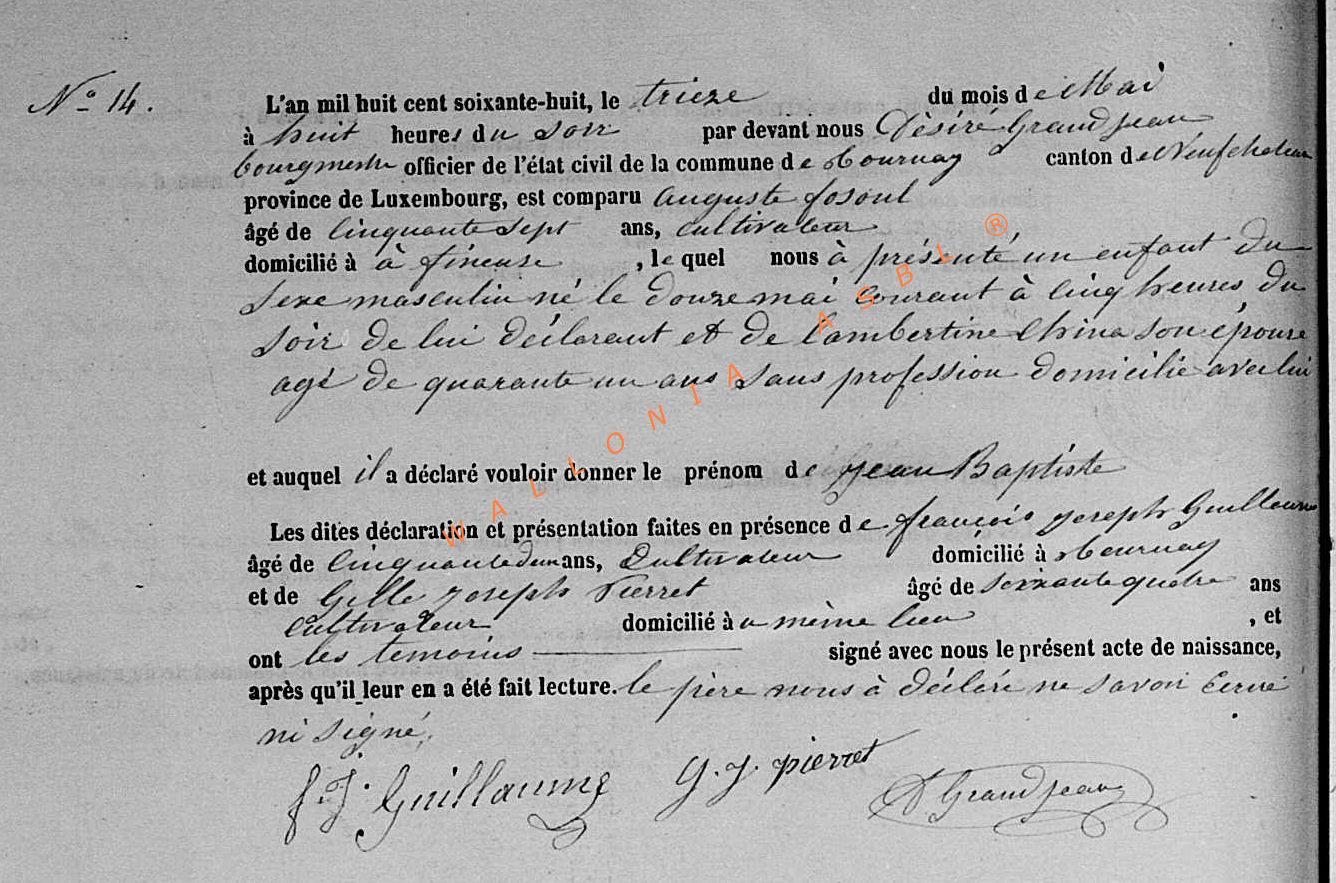 N° 14.
L'an mil huit cent soixante-huit, le trieze du mois de Mai
à huit heures du soir par devant nous Dèsiré Grandjean
bourgmestre officier de l'état civil de la commune de Tournay canton de Neufchateau
province de Luxembourg, est comparu auguste fosoul
âgé de cinquante sept ans, cultivateur
domicilié à à fineuse, le quel nous à présenté un enfant du
sexe masculin né le douze mai courant à cinq heures du
soir de lui déclarant et de Lambertine China son épouse
agé de quarante un ans sans profession domicilié avec lui
et auquel il a déclaré vouloir donner le prénom de Jean Baptiste
Les dites déclaration et présentation faites en présence de françois joseph Guillaume
âgé de cinquante deux ans, Cultivateur domicilié à Tournay
et de Gille joseph Pierret âgé de soixante quatre ans
cultivateur domicilié à u mème lieu, et
ont les temoins signé avec nous le présent acte de naissance,
après qu'il leur en a été fait lecture. le père nous à déclaré ne savoir
ni signé.
f. J. Guillaume G. J. pierret D Grandjean
WALLONIA ASBL ®